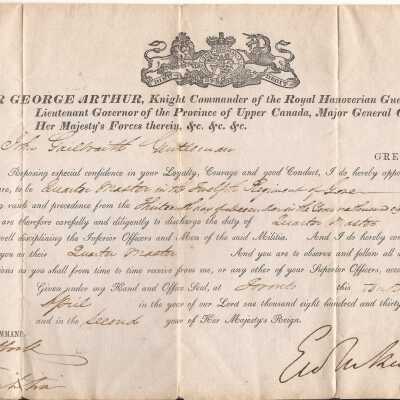 R GEORGE ARTHUR, Knight Commander of the Royal Hanoverian Gue
Lieutenant Governor of the Province of Upper Canada, Major General C
Her Majesty's Forces therein, &c. &c. &c.
John Galbraith Gentleman
GRE
Reposing especial confidence in your Loyalty, Courage and good Conduct, I do hereby appoi
re, to be Quarter Master in the Twelfth Regiment of Gore
g rank and precedence from the
are therefore carefully and diligently to discharge the duty of Quarter Master
well disciplining the Inferior Officers and Men of the said Militia. And I do hereby com
you as their Quarter Master And you are to observe and follow all s
tions as you shall from time to time receive from me, or any other of your Superior Officers, accor
Given under my Hand and Office Seal, at Toronto this
April in the year of our Lord one thousand eight hundred and thirty
and in the Second year of Her Majesty's Reign.
OMMAND.